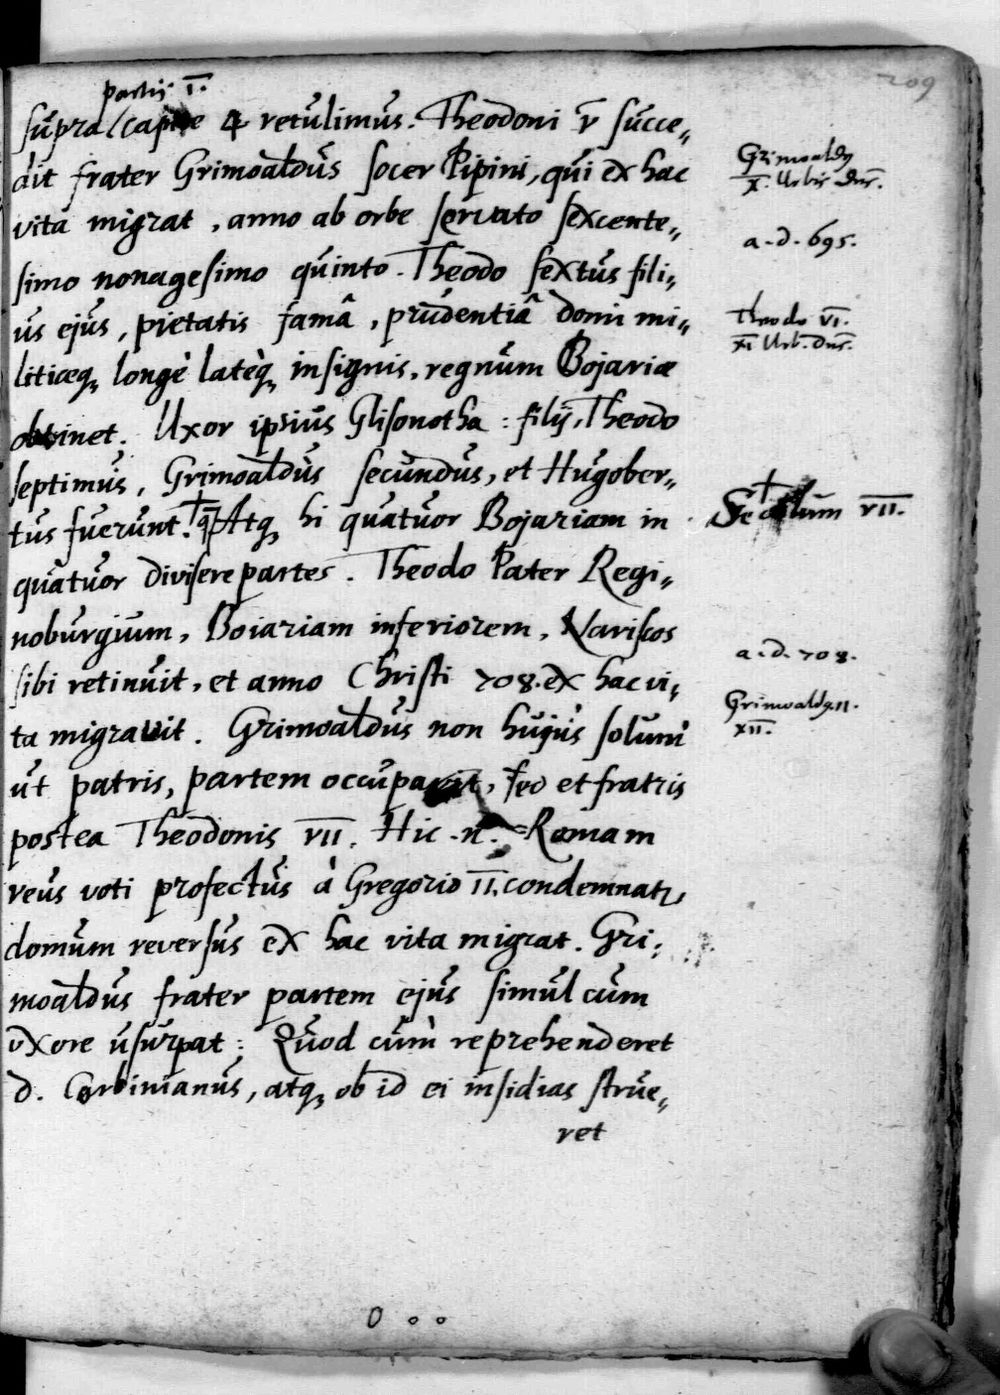 209
partis I.
supra capite 4 retulimus. Theodoni V succe„
dit frater Grimoaldus socer Pipini, qui ex hac
vita migrat, anno ab orbe servato sexcente„
simo nonagesimo quinto. Theodo sextus fili„
us ejus, pietatis famâ, prudentiâ domi mi„
litiæq, longè latèq, insignis, regnum Bojariæ
obtinet. Uxor ipsius Glisonotha: filij, Theodo
septimus, Grimoaldus secundus, et Hugober„
tus fuerunt. Atq, hi quatuor Bojariam in
quatuor divisere partes. Theodo Pater Regi„
noburgium, Boiariam inferiorem, Nariscos
sibi retinuit, et anno Christi 708. ex hac vi„
ta migravit. Grimoaldus non hujus solum
ut patris, partem occupavit, sed et fratris
postea Theodonis VII. Hic .n. Romam
reus voti profectus à Gregorio II. condemnatz,
domum reversus ex hac vita migrat. Gri„
moaldus frater partem ejus simul cum
vxore usurpat: Quod cum reprehenderet
D. Corbinianus, atq, ob id ei insidias strue„
ret
Grimoaldq
X. Urbis Dns.
a.d. 695.
Theodo VI.
XI Urb. Dns.
† Seculum VII.
a.d. 708.
Grimoaldq. II.
XII.